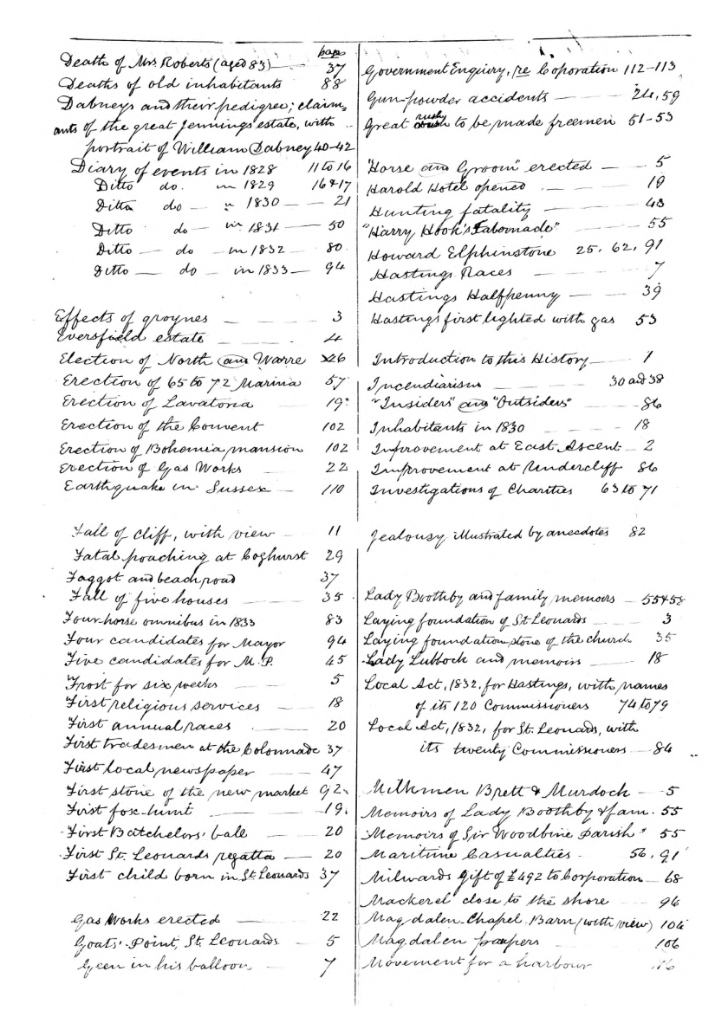 page
Deaths of Mrs Roberts (aged 83) — 37
Deaths of old inhabitants 88
Dabneys and their pedigree; claim,
ants of the great Jennings estate, with
portrait of William Dabney 40-42
Diary of events in 1828 11 to 16
Ditto do. in 1829 16 & 17
Ditto do — " 1830 — 21
Ditto do — in 1831 — 50
Ditto — do — in 1832 — 80
Ditto — do — in 1833 — 94
Effects of groynes — 3
Eversfield estate — 4
Election of North and Warre 26
Erection of 65 to 72 Marina 57
Erection of Lavatoria 19
Erection of the Convent 102
Erection of Bohemia mansion 102
Erection of Gas Works — 22
Earthquake in Sussex — 110
Fall of cliff, with view — 11
Fatal poaching at Coghurst 29
Faggot and beach road 37
Fall of five houses — 35
Four horse omnibus in 1833 83
Four candidates for Mayor 94
Five candidates for M.P. 45
Frost for six weeks — 5
First religious services — 18
First annual races — 20
First tradesmen at the Colonnade 37
First local newspaper — 47
First stone of the new market 92
First fox-hunt — 19
First Batchelors' ball — 20
First St. Leonards regatta — 20
First child born in St Leonards 37
Gas Works erected — 22
Goats' Point, St Leonards — 5
Green in his balloon — 7
Government Enquiry, re Coporation 112-113
Gun-powder accidents — 24, 59
Great rush to be made freemen 51-53
"Horse and Groom" erected — 5
Harold Hotel opened — 19
Hunting fatality — 43
"Harry Hook's — 55
Howard Elphinstone 25, 62, 91
Hastings Races — 7
Hastings Halfpenny — 39
Hastings first lighted with gas 53
Introduction to this History — 1
Incendiarism — 30 and 38
"Insiders" and "Outsiders" — 86
Inhabitants in 1830 — 18
Improvement at East Ascent — 2
Improvement at Undercliff 86
Investigations of Charities 63 to 71
Jealousy illustrated by anecdotes 82
Lady Boothby and family memoirs — 55 & 58
Laying foundation of St Leonards — 3
Laying foundation-stone of the church 35
Lady Lubbock and memoirs — 18
Local Act, 1832, for Hastings, with names
of its 120 Commissioners 74 to 79
Local Act, 1832, for St. Leonards, with
its twenty Commissioners — 84
Milkmen Brett & Murdock — 5
Memoirs of Lady Boothby & fam. 55
"Memoirs of Sir Woodbine Parish" 55
Maritime Casualties — 56, 91
Milwards gift of £492 to Corporation — 68
Mackerel close to the shore — 94
Magdalen Chapel, Barn (with view) 104
Magdalen paupers — 106
Movement for a harbour